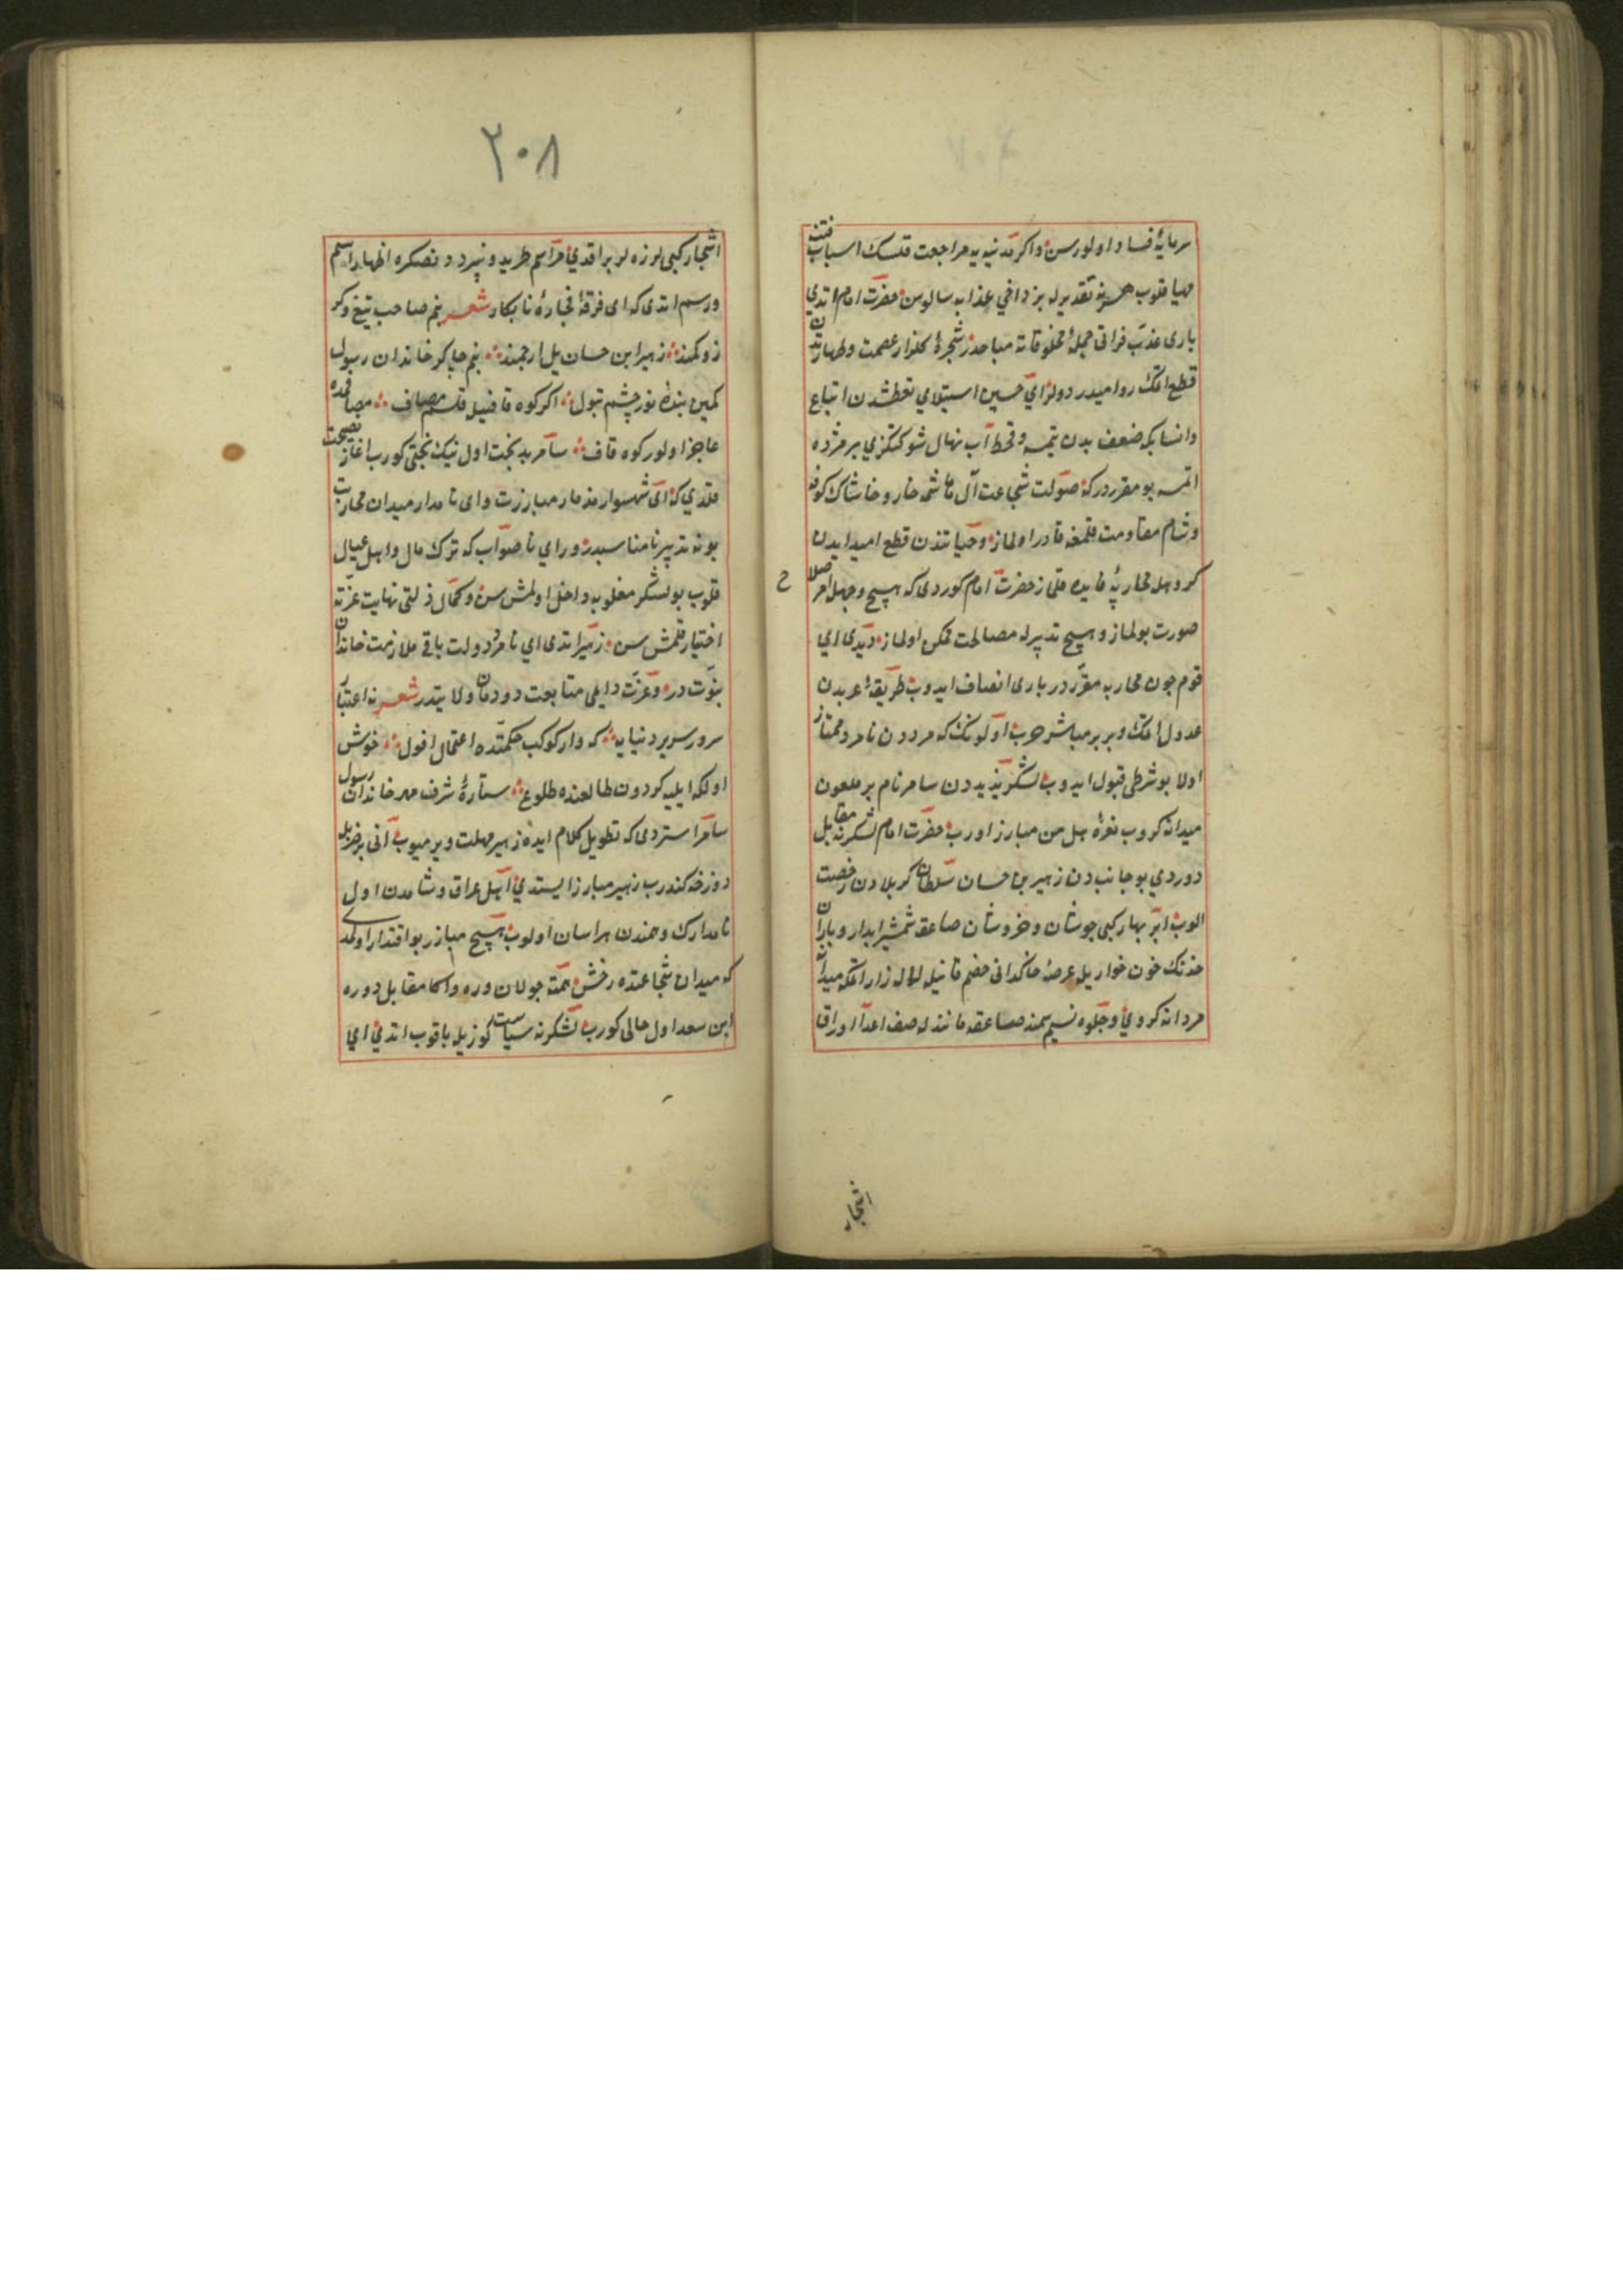 سرمایۀ فساد اولورسن واکر مدینه یه مراجعت قلسک اسباب فتنه
مهیا قلوب هر نه تقدیرله بزداخی عذابه سالورسن حضرت امام ایتدی
یاری عذب فراتی جملۀ مخلوقاته مباحدر شجرۀ کلزار عصمت وطهارتدن
قطع اتمک روا میدر دولر ای حسین استیلای تعطشدن اتباع
وانسابکه ضعف بدن یتمسه وقحط آب نهال شوکتکزی پر مژده
اتمسه بو مقرردرکه صولت شجاعت آل هاشمه خار وخاشاک کوفه
وشام مقاومت قلمغه قادر اولماز وحیاتندن قطع امید ایدن
کروهله محاربه فایده قلماز حضرت امام کوردی که هیچ وجهله اصلا
ح
صورت بولماز وهیچ تدبیرله مصالحت ممکن اولماز دیدی ای
قوم چون محاربه مقرر در باری انصاف ایدوب طریقۀ عربدن
عدول اتمک وبربر مباشر حرب اولونک که مرددن نامرد ممتاز
اولا بو شرطی قبول ایدوب لشکر یزیددن سامر نام بر ملعون
میدانه کروب نعرۀ هل من مبارز اورب حضرت امام لشکرنه مقابل
دوردی بو جانبدن زهیر بن حسان سلطان کربلادن رخصت
الوب ابر بهار کبی جوشان وخروشان صاعقه شمشیر ابدار وباران
خدنک خون خواریله عرصۀ خاکدانی خصم قانیله لاله زار اتمکه میدانه
مردانه کردی وجلوه نسیم سمند صاعقه مانندله صف اعدا اوراق
اشجار
٢٠٨
اشجار کبی لرزه لر براقدی مراسم طرید ونبرددنصکره اظهار اسم
ورسم ایتدی که ای فرقۀ فجارۀ نابکار شعر بنم صاحب تیغ وکر
ز وکمند زهیر ابن حسان یل ارجمند بنم چاکر خاندان رسول
کمین بندۀ نور چشم بتول اکر کوه قافیله قلسم مصاف مصافمده
عاجز اولور کوه قاف سامر بدبخت اول نیک بختی کورب اغاز نصیحت
قلدی که ای شهسوار مضمار مبارزت وای نامدار میدان محاربت
بو نه تدبیر نامناسبدر ورای ناصواب که ترک مال واهل عیال
قلوب بو لشکر مغلوبه داخل اولمش سن وکمال ذلتی نهایت عزته
اختیار قلمش سن زهیر ایتدی ای نامرد دولت باقی ملازمت خاندان
نبوت در وعزت دایمی متابعت دودمان ولایتدر شعر نه اعتبار
سرور سریر دنیایه که وار کوکب حکمتده احتمال افول خوش
اولکه ایلیه کردون طالعنده طلوع ستارۀ شرف مهر خاندان رسول
سامر استردی که تطویل کلام ایده زهیر مهلت ویرمیوب آنی بر ضربله
دوزخه کندرب زهیر مبارز ایستدی اهل عراق وشامدن اول
نامدارک وهمندن هراسان اولوب هیچ مبارز بو اقتدار اولمدی
که میدان شجاعتده رخش همته جولان وره واکا مقابل دوره
ابن سعد اول حالی کورب لشکرنه سیاست کوزیله باقوب ایتدی ای